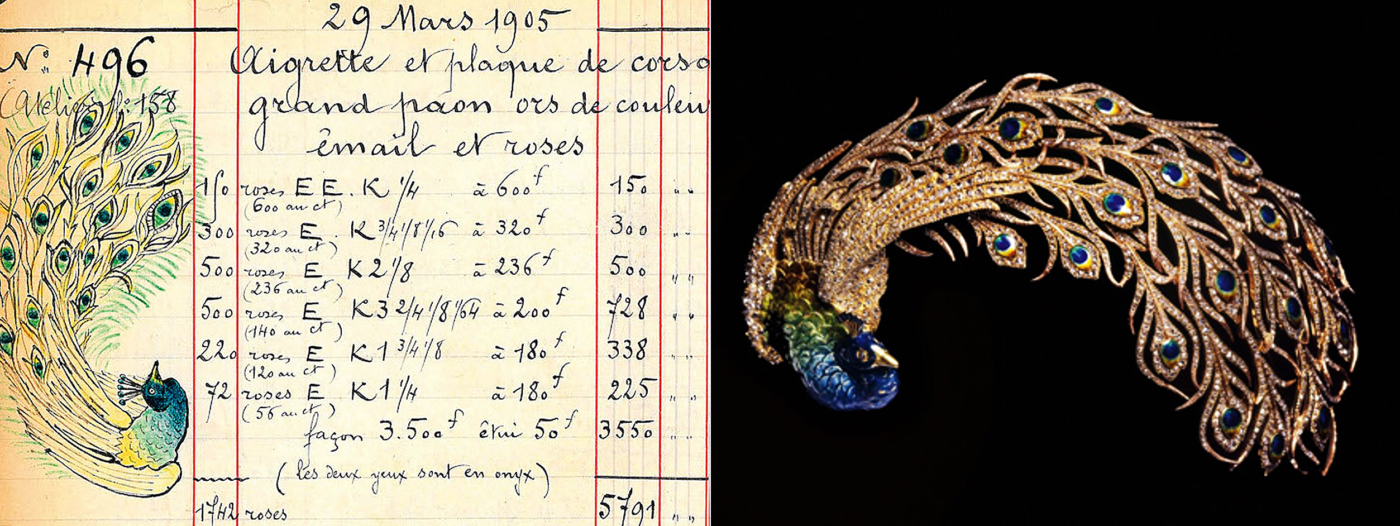 29 Mars 1905
N: 496
Aigrette et plaque de corsa
(Atelier): 158
grand paon ors de couleu
émail et roses
150 roses E E. K 1/4 à 600f 150 " "
(600 au ct)
300 roses E K 3/4 1/8 1/16 à 320f 300 " "
(320 au ct)
500 roses E K 2 1/8 à 236f 500 " "
(236 au ct)
500 roses E K 3 2/4 1/8 1/64 à 200f 728 " "
(140 au ct)
220 roses E K 1 3/4 1/8 à 180f 338 " "
(120 au ct)
72 roses E K 1 1/4 à 180f 225 " "
(56 au ct)
façon 3.500f étui 50f 3550 " "
(les deux yeux sont en onyx)
1742 roses 5791 " "